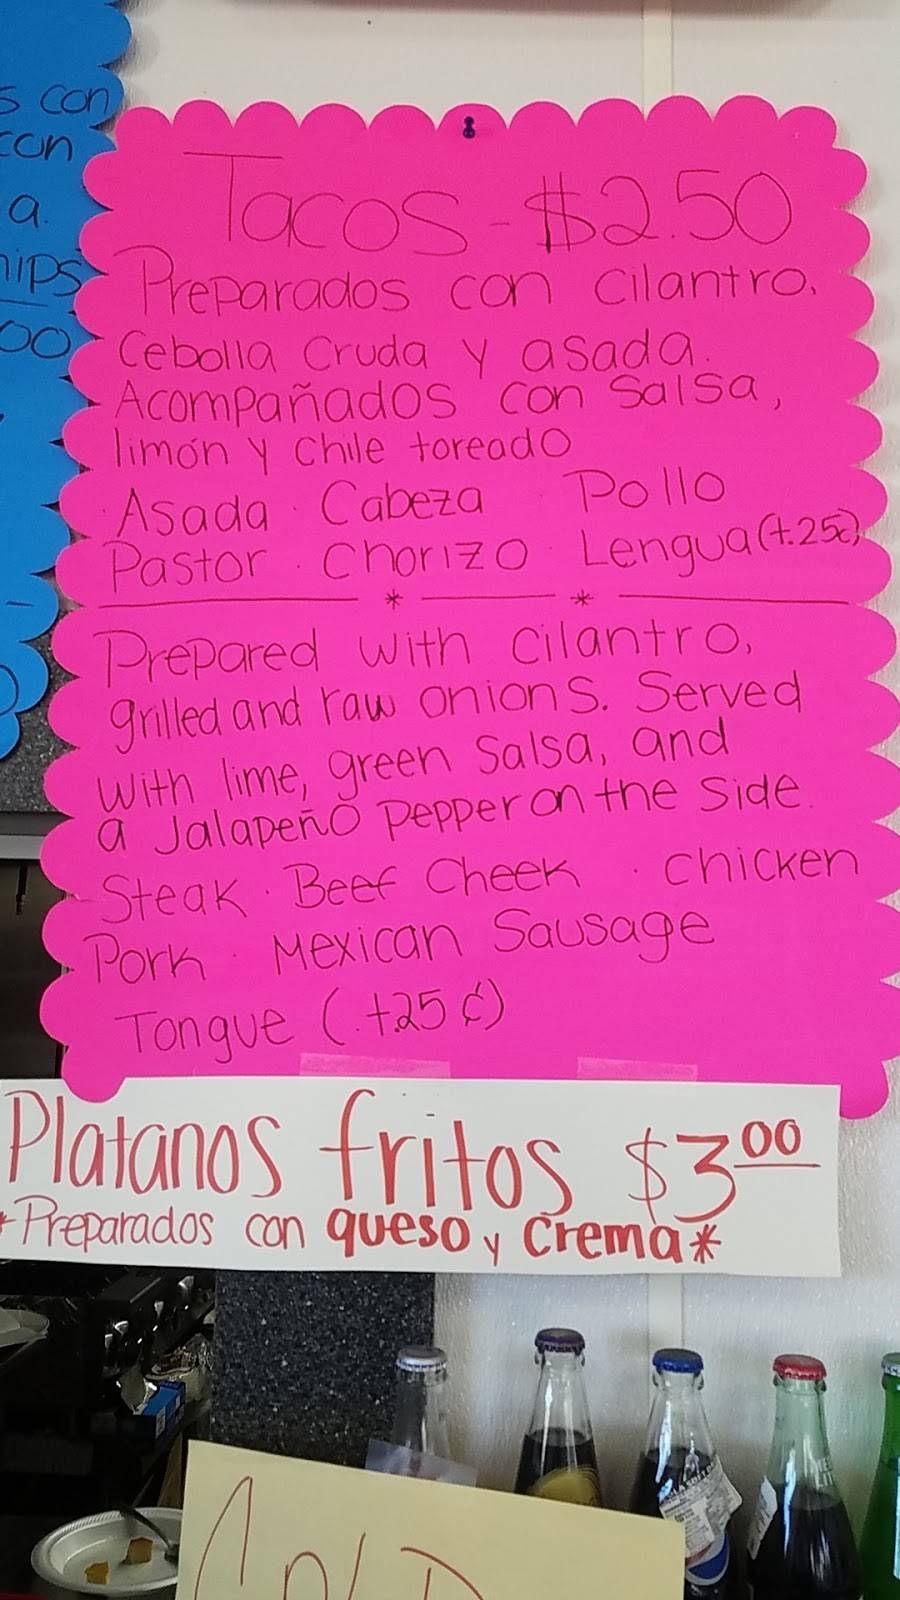 s con
con
a.
hips
00
Tacos - $2.50
Preparados con cilantro,
Cebolla cruda y asada.
Acompañados con salsa,
limón y chile toreado
Asada · Cabeza · Pollo
Pastor · Chorizo · Lengua (+.25¢)
Prepared with cilantro,
grilled and raw onions. Served
with lime, green salsa, and
a Jalapeño pepper on the side.
Steak · Beef Cheek · Chicken
Pork · Mexican Sausage
Tongue (.+.25¢)
Platanos fritos $3.00
*Preparados con queso y crema*